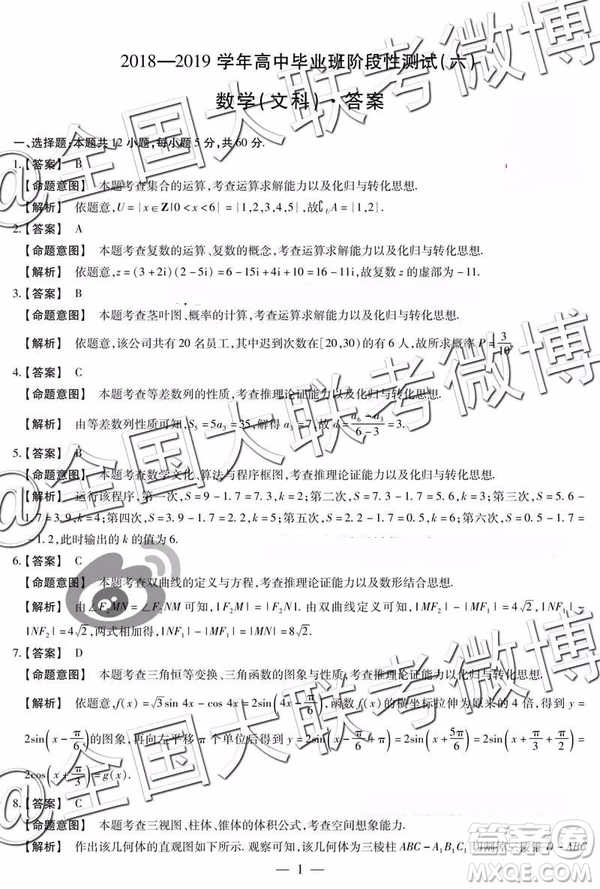 2018—2019 学年高中毕业班阶段性测试(六)
数学(文科)·答案
一、选择题:本题共 12 小题,每小题 5 分,共 60 分.
1.【答案】 B
【命题意图】 本题考查集合的运算,考查运算求解能力以及化归与转化思想.
【解析】 依题意,U={x∈Z|0<x<6}={1,2,3,4,5},故∁UA={1,2}.
2.【答案】 A
【命题意图】 本题考查复数的运算、复数的概念,考查运算求解能力以及化归与转化思想.
【解析】 依题意,z=(3+2i)(2-5i)=6-15i+4i+10=16-11i,故复数 z 的虚部为-11.
3.【答案】 B
【命题意图】 本题考查茎叶图、概率的计算,考查运算求解能力以及化归与转化思想.
【解析】 依题意,该公司共有 20 名员工,其中迟到次数在[20,30)的有 6 人,故所求概率 P=3/10.
4.【答案】 C
【命题意图】 本题考查等差数列的性质,考查推理论证能力以及化归与转化思想.
【解析】 由等差数列的性质可知,S5=5a3=35,解得 a3=7,故 d=(a6-a3)/(6-3)=3.
5.【答案】 B
【命题意图】 本题考查数学文化、算法与程序框图,考查推理论证能力以及化归与转化思想.
【解析】 运行该程序,第一次,S=9-1.7=7.3,k=2;第二次,S=7.3-1.7=5.6,k=3;第三次,S=5.6-
1.7=3.9,k=4;第四次,S=3.9-1.7=2.2,k=5;第五次,S=2.2-1.7=0.5,k=6;第六次,S=0.5-1.7=
-1.2,此时输出的 k 的值为 6.
6.【答案】 C
【命题意图】 本题考查双曲线的定义与方程,考查推理论证能力以及数形结合思想.
【解析】 由∠F2MN=∠F2NM 可知,|F2M|=|F2N|.由双曲线定义可知,|MF2|-|MF1|=4√2,|NF1|-
|NF2|=4√2,两式相加得,|NF1|-|MF1|=|MN|=8√2.
7.【答案】 D
【命题意图】 本题考查三角恒等变换、三角函数的图象与性质,考查推理论证能力以及化归与转化思想.
【解析】 依题意,f(x)=√3sin 4x-cos 4x=2sin(4x-π/6),f(x)的横坐标拉伸为原来的 4 倍,得到 y=
2sin(x-π/6)的图象,再向左平移 π 个单位后,得到 y=2sin(x+5π/6)=2sin(x+π/3+π/2)=
2cos(x+π/3)=g(x).
8.【答案】 C
【命题意图】 本题考查三视图、柱体、锥体的体积公式,考查空间想象能力.
【解析】 作出该几何体的直观图如下所示.可知,该几何体为三棱柱 ABC-A1B1C1 切割掉三棱锥 D-ABC
— 1 —
@全国大联考微博
@全国大联考微博
@全国大联考微博
答案圈